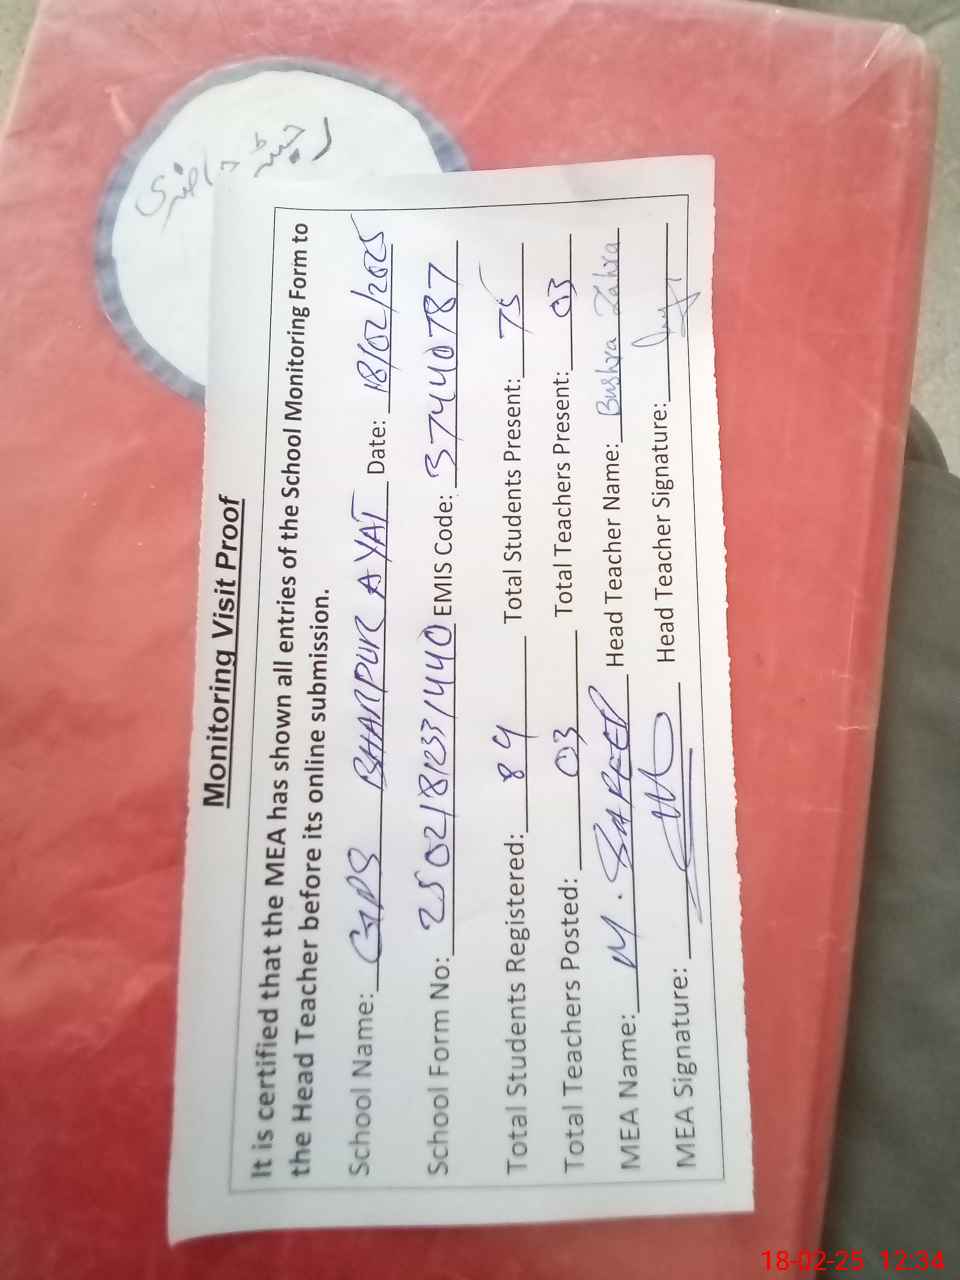 رجسٹر حاضری
Monitoring Visit Proof
It is certified that the MEA has shown all entries of the School Monitoring Form to
the Head Teacher before its online submission.
School Name: GPS BHANPUR AYAT Date: 18/02/2025
School Form No: 25021812331440 EMIS Code: 37440787
Total Students Registered: 89 Total Students Present: 75
Total Teachers Posted: 03 Total Teachers Present: 03
MEA Name: M. SAFEER Head Teacher Name: Bushra Zahra
MEA Signature: Head Teacher Signature:
18-02-25 12:34